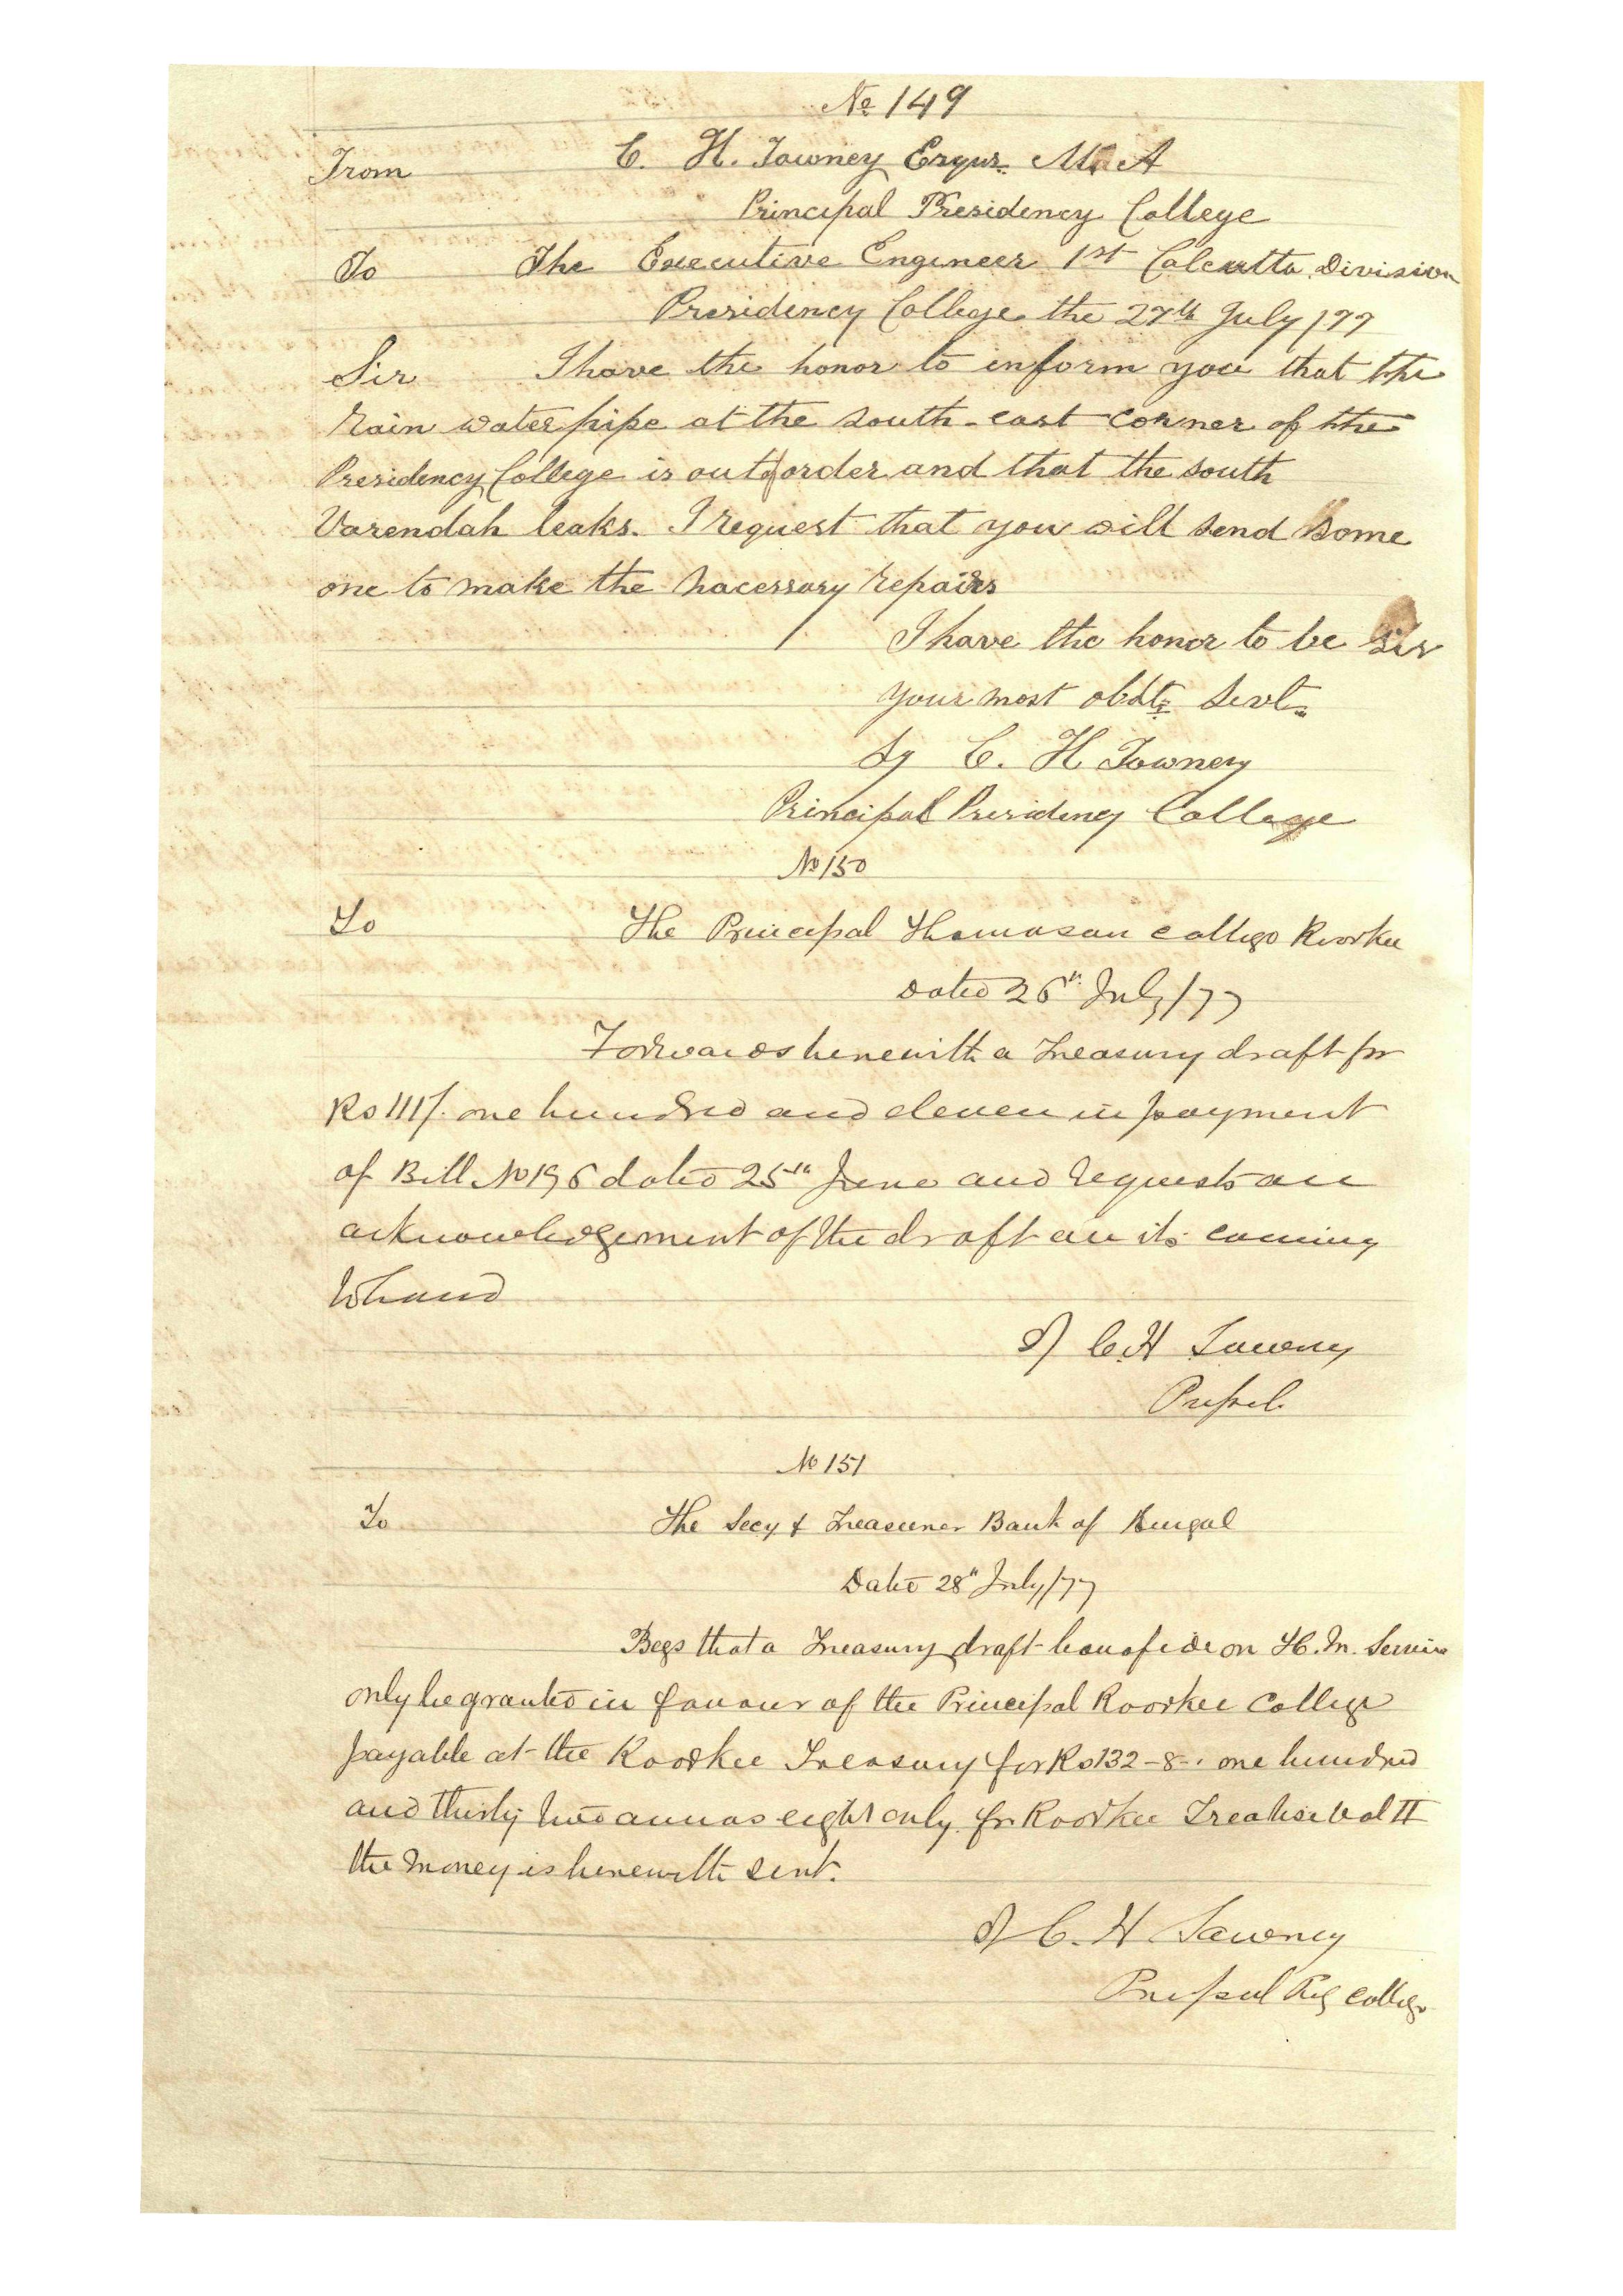 No 149
From C. H. Tawney Esqur. M. A
Principal Presidency College
To The Executive Engineer 1st Calcutta Division
Presidency College the 27th July /77
Sir I have the honor to inform you that the
Rain water pipe at the south-east corner of the
Presidency College is out of order and that the south
Varendah leaks. I request that you will send some
one to make the nacessary repairs
I have the honor to be Sir
Your most obdt. Servt.
Sg C. H Tawney
Principal Presidency College
No 150
To The Principal Thomason College Roorkee
Dated 26th July /77
Forwards herewith a Treasury draft for
Rs 111/. one hundred and eleven in payment
of Bill No 196 dated 25th June and requests an
acknowledgement of the draft on its coming
to hand
Sg C. H Tawney
Prinpal
No 151
To The Secy & Treasurer Bank of Bengal
Dated 28th July /77
Begs that a Treasury draft bonafide on H. M. Service
only be granted in favour of the Principal Roorkee College
payable at the Roorkee Treasury for Rs 132-8-. one hundred
and thirty two annas eight only for Roorkee Treatise Vol II
the money is herewith sent.
Sg C. H Tawney
Prinpal College